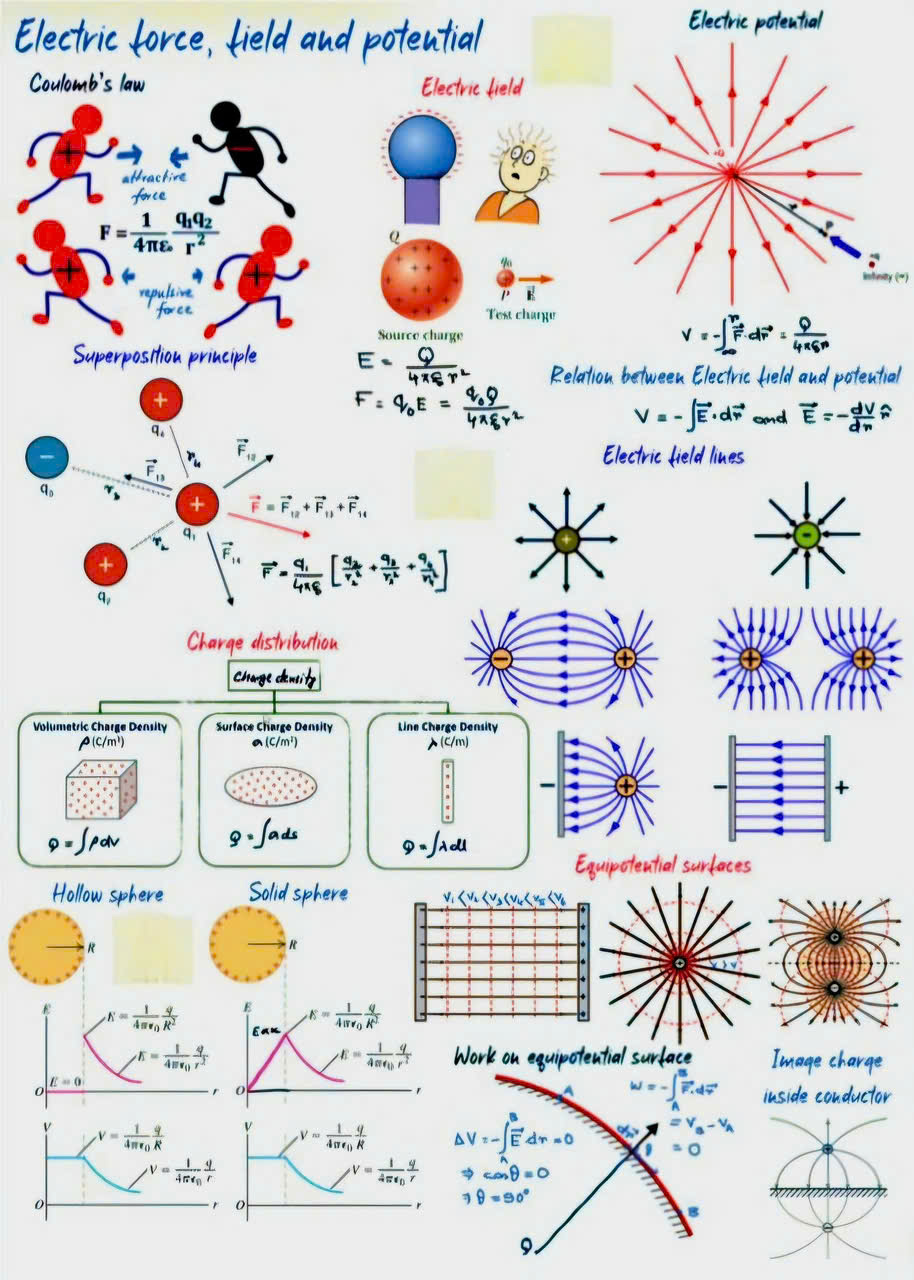 Electric force, field and potential
Coulomb's law
attractive
force
F = 1/4πε₀ q₁q₂/r²
repulsive
force
Electric field
Q
Source charge
q₀
P
E⃗
Test charge
E = Q/4πε₀r²
F = q₀E = q₀Q/4πε₀r²
Electric potential
+Q
r
P
Infinity (∞)
V = -∫_∞^r E⃗.dr⃗ = Q/4πε₀r
Relation between Electric field and potential
V = -∫E⃗.dr⃗ and E⃗ = -dV/dr r̂
Superposition principle
q₄
r₄
F⃗₁₂
F⃗₁₃
q₃
r₃
q₁
F⃗ = F⃗₁₂ + F⃗₁₃ + F⃗₁₄
r₂
F⃗₁₄
q₂
F⃗ = q₁/4πε₀ [q₂/r₂² + q₃/r₃² + q₄/r₄²]
Electric field lines
Charge distribution
Charge density
Volumetric Charge Density
ρ (C/m³)
Q = ∫ρdv
Surface Charge Density
σ (C/m²)
Q = ∫σds
Line Charge Density
λ (C/m)
Q = ∫λdl
Equipotential surfaces
V₁ < V₂ < V₃ < V₄ < V₅ < V₆
Hollow sphere
R
E
E = 1/4πε₀ q/R²
E = 1/4πε₀ q/r²
E = 0
O
r
V
V = 1/4πε₀ q/R
V = 1/4πε₀ q/r
O
r
Solid sphere
R
E
E = 1/4πε₀ q/R²
E = 1/4πε₀ q/r²
O
r
V
V = 1/4πε₀ q/R
V = 1/4πε₀ q/r
O
r
Work on equipotential surface
A
W = -∫_A^B F⃗.dr⃗
= V_B - V_A
= 0
ΔV = -∫_A^B E⃗.dr = 0
⇒ cosθ = 0
⇒ θ = 90°
dr⃗
B
Q
Image charge
inside conductor